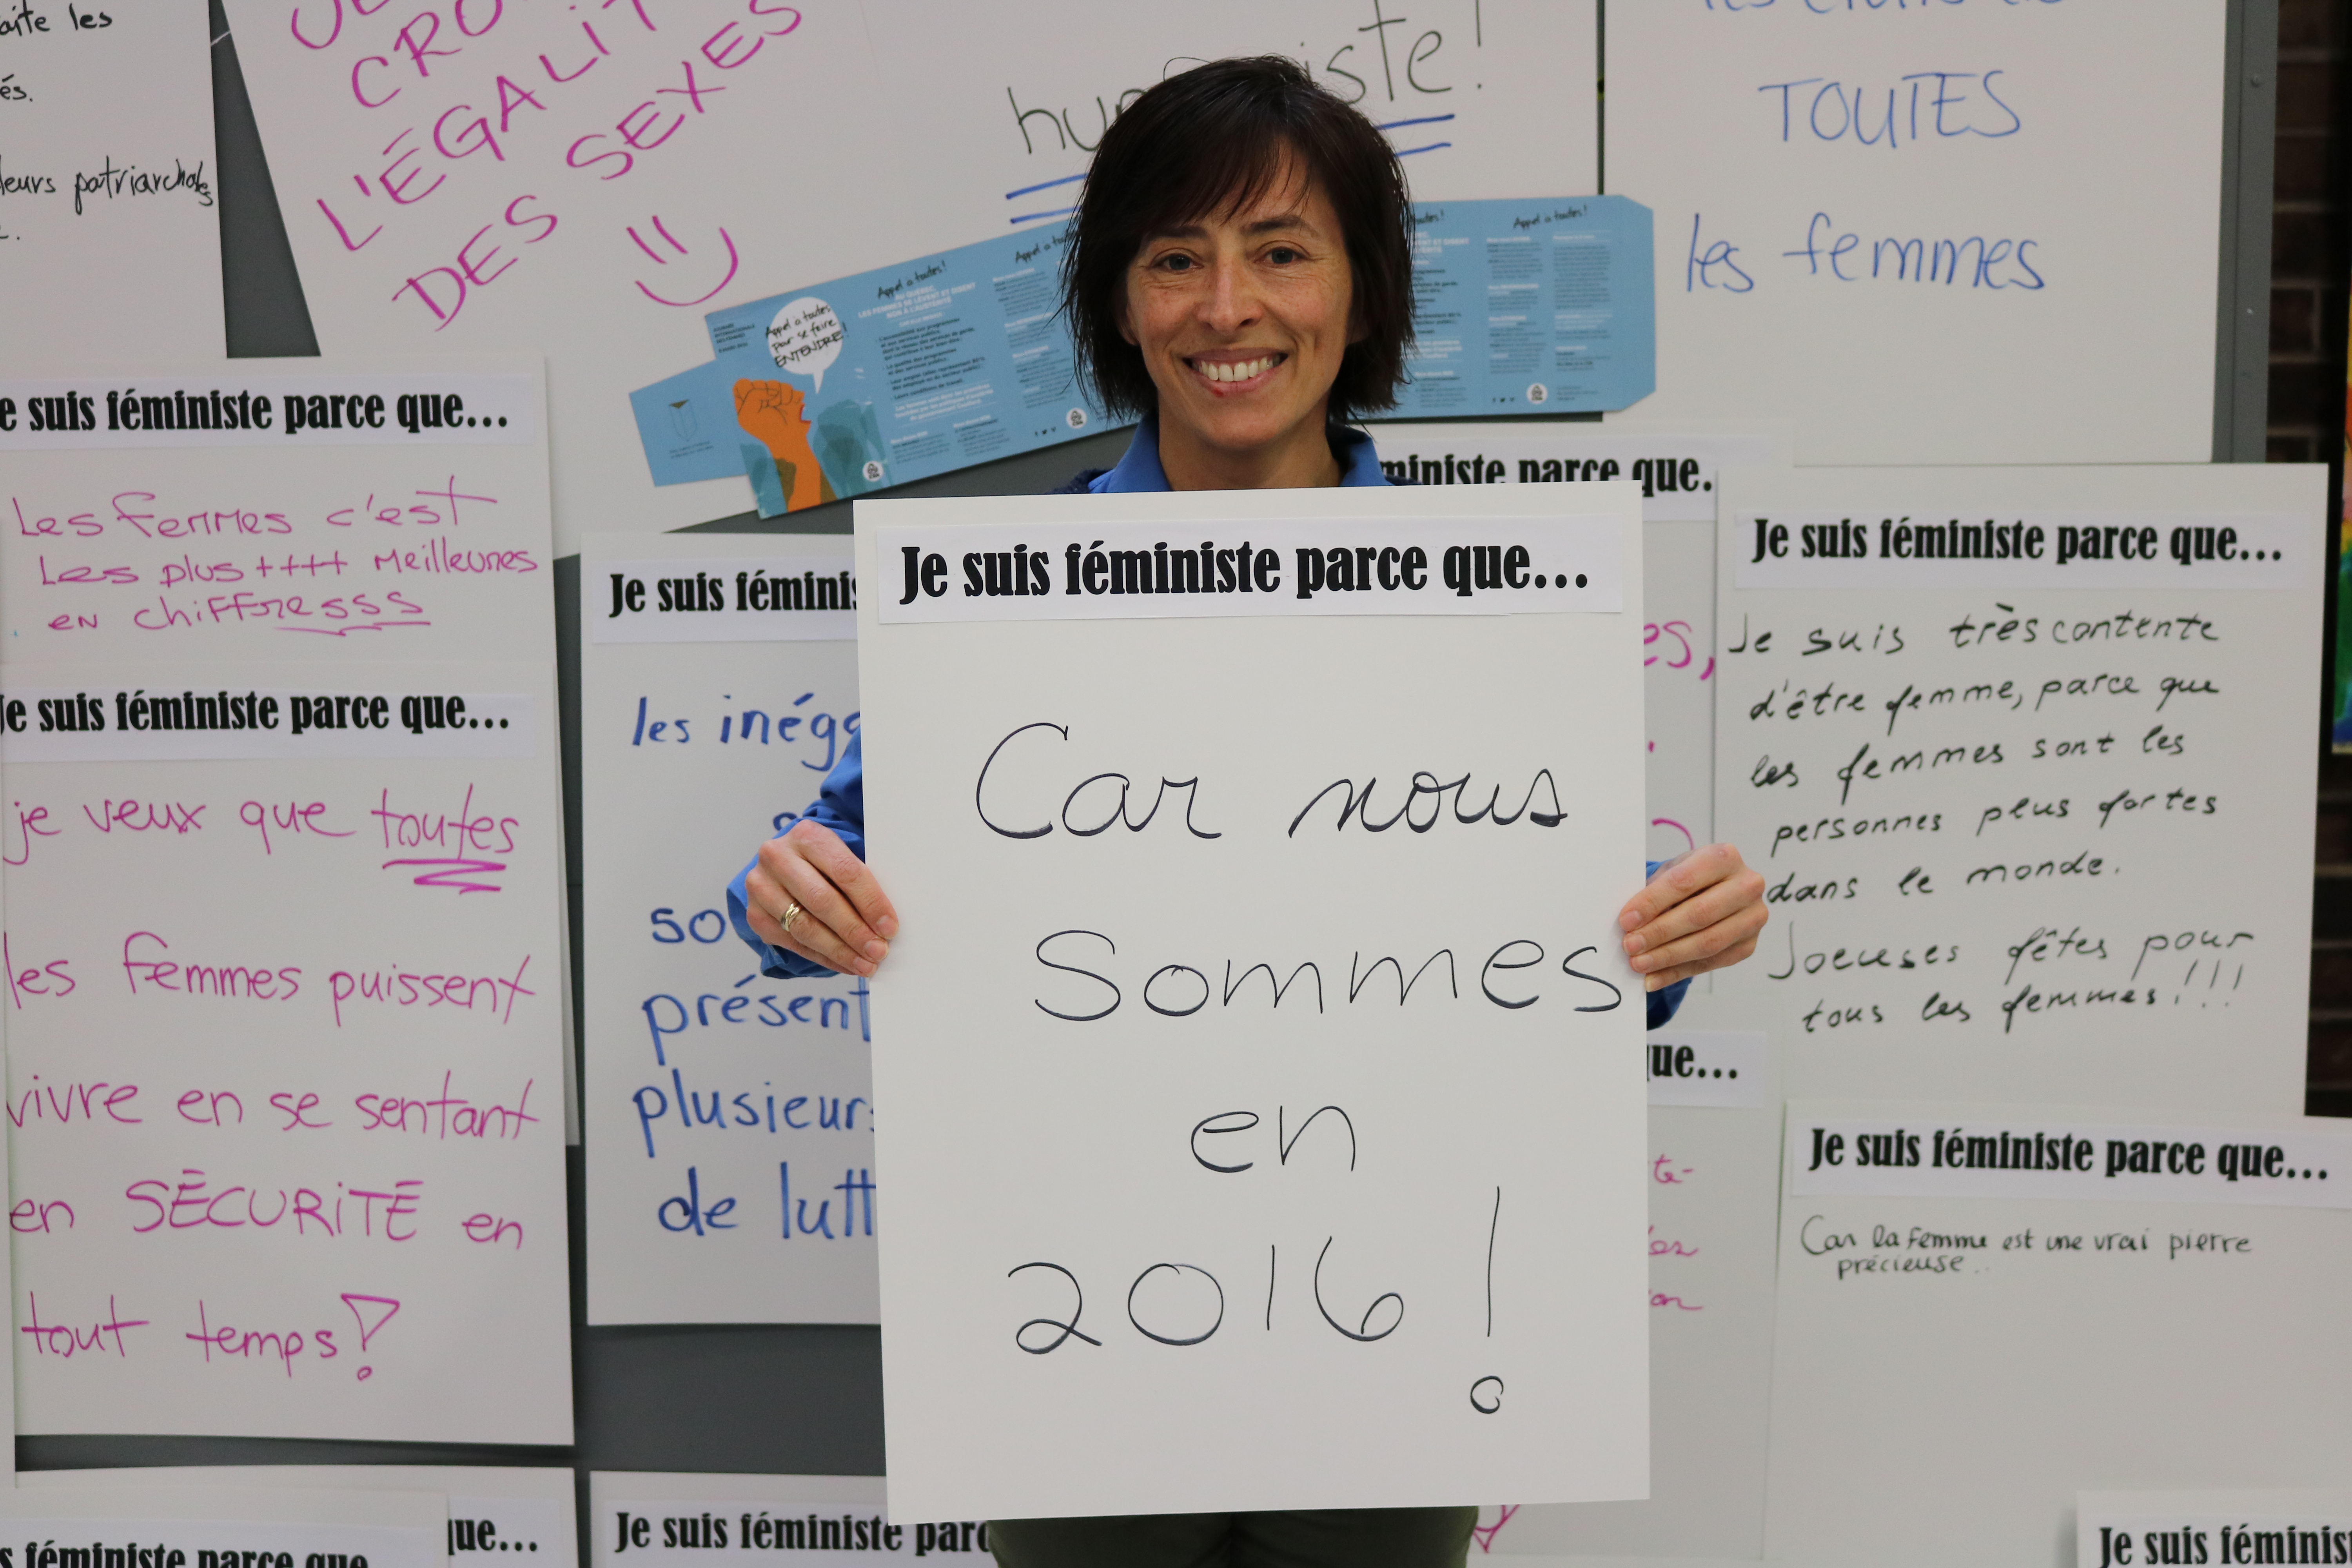 aite les
és.
leurs patriarchales
CRO
L'ÉGALIT
DES SEXES
humaniste!
TOUTES
les femmes
Appel à toutes
pour se faire
ENTENDRE!
Appel à toutes!
AU QUÉBEC,
LES FEMMES SE LÈVENT ET DISENT
NON À L'AUSTÉRITÉ
Appel à toutes!
Appel à toutes!
e suis féministe parce que...
Les femmes c'est
Les plus ++++ Meilleures
en chiffresss
Je suis féministe parce que...
je veux que toutes
les femmes puissent
vivre en se sentant
en SÉCURITÉ en
tout temps!
Je suis féminis
les inéga
so
présent
plusieurs
de lutt
Je suis féministe parce que...
Car nous
Sommes
en
2016!
ministe parce que.
es,
ue...
te-
Je suis féministe parce que...
Je suis très contente
d'être femme, parce que
les femmes sont les
personnes plus fortes
dans le monde.
Joeuses fêtes pour
tous les femmes!!!
Je suis féministe parce que...
Car la femme est une vrai pierre
précieuse..
s féministe parce que
que...
Je suis féministe parc
Je suis féminist